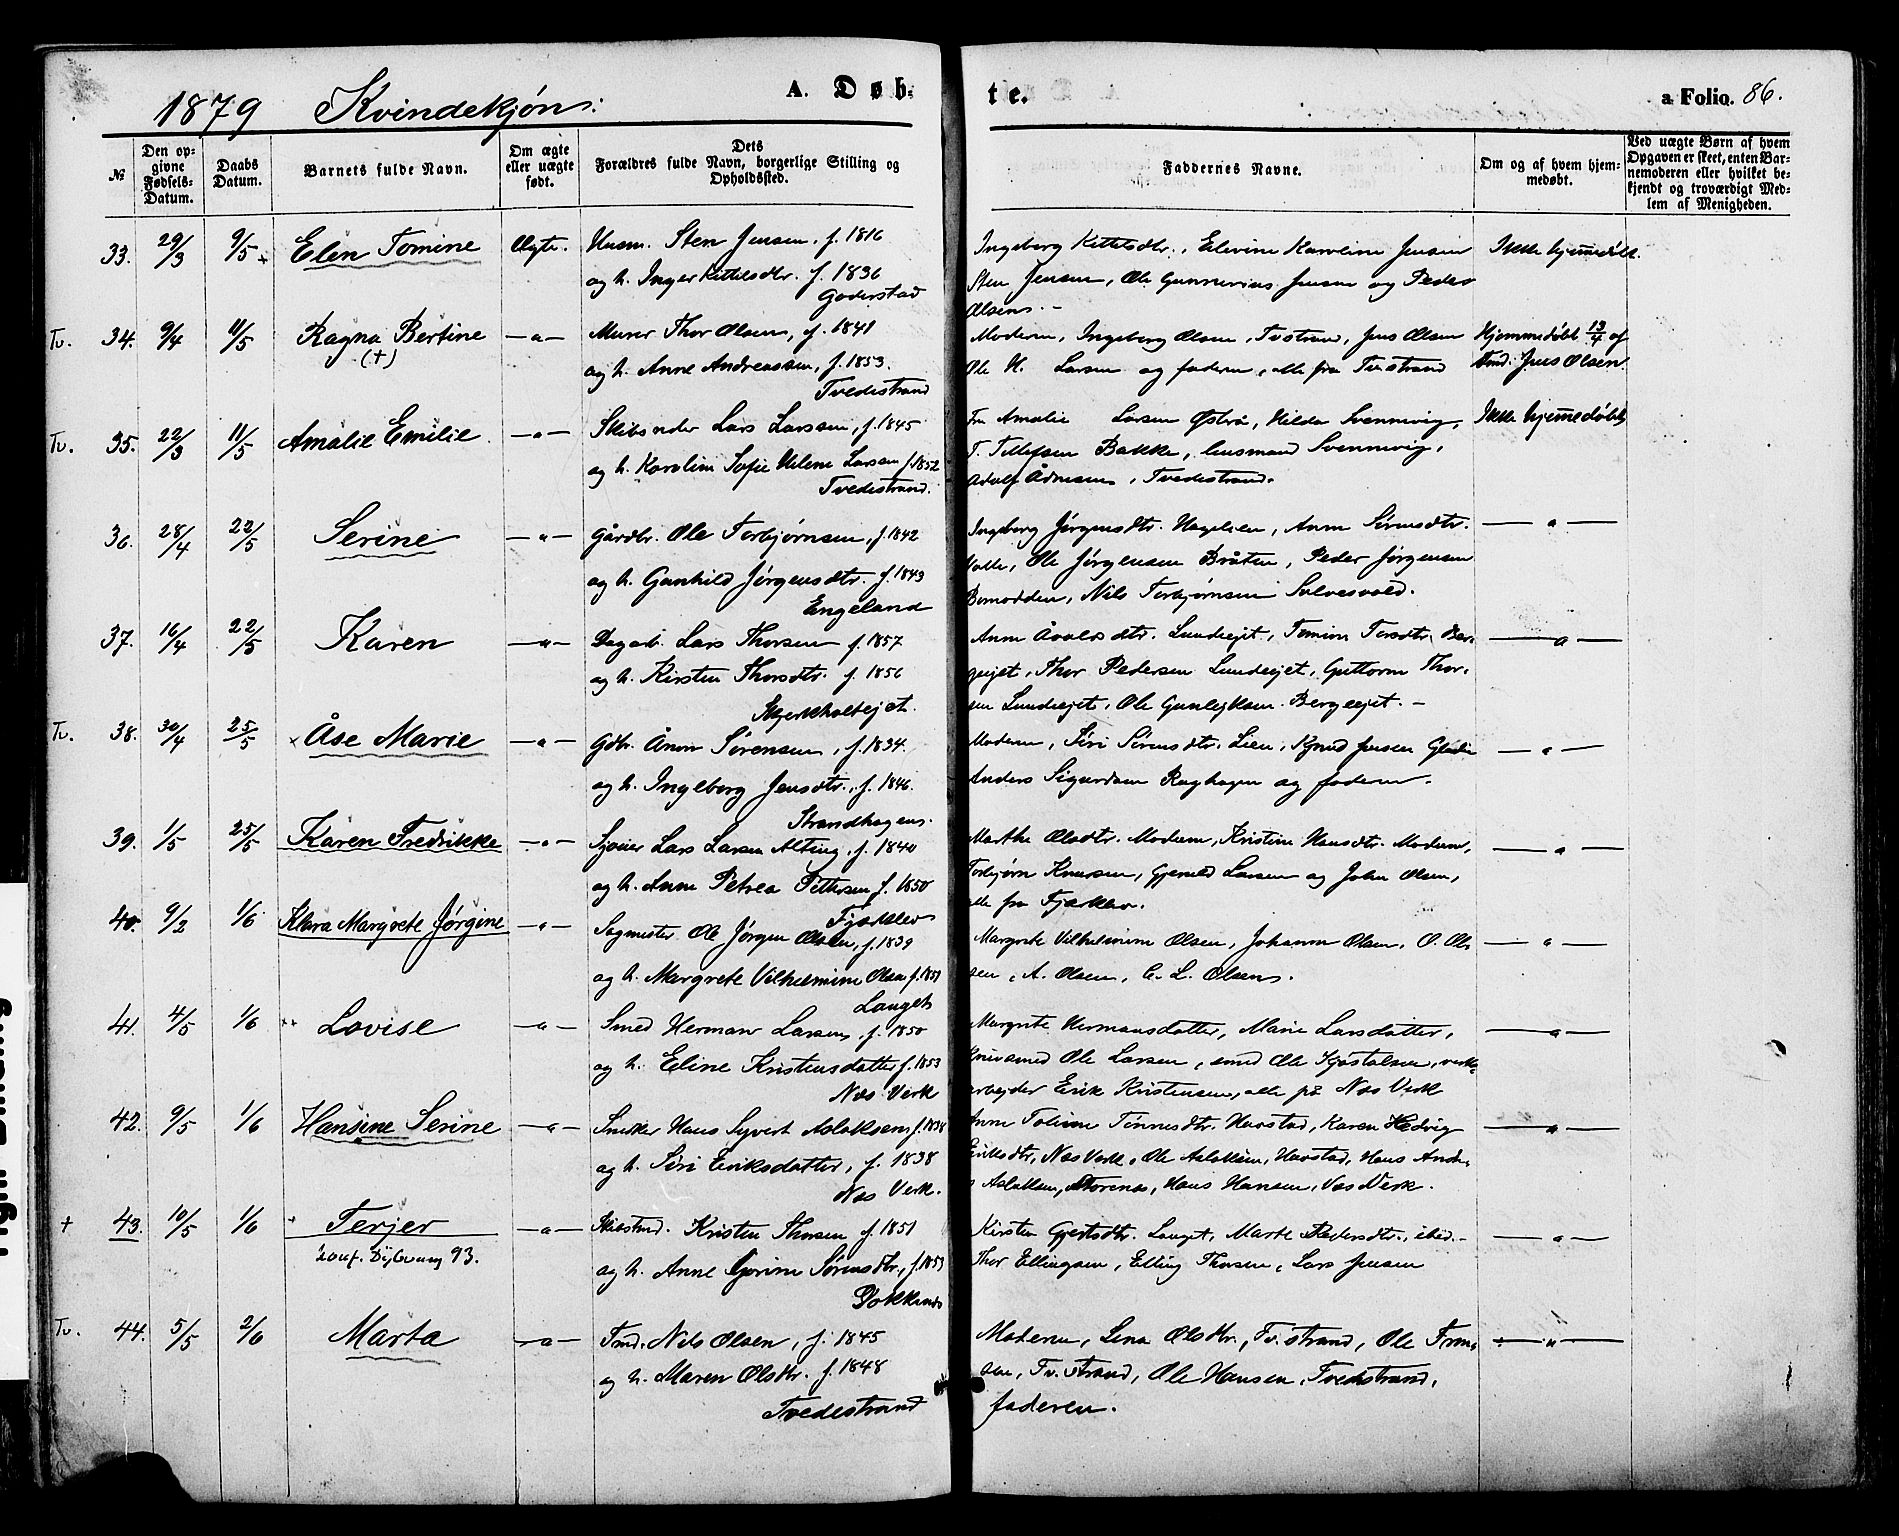 1879 Kvindekjøn:
A. Døb-
te.
a Folio. 86.
№
Den opgivne Fødsels-Datum.
Daabs Datum.
Barnets fulde Navn.
Om ægte eller uægte født.
Dets Forældres fulde Navn, borgerlige Stilling og Opholdssted.
Faddernes Navne.
Om og af hvem hjemmedøbt.
Ved uægte Børn af hvem Opgaven er skeet, enten Barnemoderen eller hvilket bekjendt og troværdigt Medlem af Menigheden.
33. 29/3 9/5 Elen Tomine Ægte. Husm. Sten Jensen, f. 1816
og h. Inger Kittelsdtr. f. 1836
Goderstad
Ingeborg Kittelsdtr., Elevine Karoline Jensen
Sten Jensen, Ole Gunnerius Jensen og Peder
Olsen. –
Ikke hjemmedøbt.
Tv. 34. 9/4 11/5 Ragna Bertine –"– Murer Thor Olsen, f. 1841
(+)
og h. Anne Andreassen, f. 1853.
Tvedestrand
Moderen, Ingeborg Olsen, Tvstrand, Jens Olsen
Ole H. Larsen og faderen, alle fra Tvstrand
Hjemmedøbt 13/4 af
Tmd. Jens Olsen.
Tv. 35. 22/3 11/5 Amalie Emilie –"– Lars Larsen, f. 1845
og h. Karoline Sofie Helene Larsen f. 1852
Tvedestrand.
Fru Amalie Larsen Østrå, Hilda Svennevig,
T. Tellefsen Bakke, lensmand Svennevig,
Adolf , Tvedestrand.
Ikke hjemmedøbt
36. 28/4 22/5 Serine –"– Gårdbr. Ole Torbjørnsen, f. 1842
og h. Gunhild Jørgensdtr. f. 1843
Engeland
Ingeborg Jørgensdtr. Hagelien, Anne Sørensdtr.
Ole Jørgensen Bråten, Peder Jørgensen
Nils Torbjørnsen Solvesvold.
–"–
37. 16/4 22/5 Karen –"– Dagarb. Lars Thorsen f. 1857
og h. Kirsten Thorsdtr. f. 1856
Skjerkholtejet.
Anne Åvoldsdtr. Lundeejet, Tomine Torsdtr. Ber-
gejet, Thor Pedersen Lundeejet, Guttorm Thor-
sen Lundeejet, Ole Gunleiksen Bergeejet. –
–"–
Tv. 38. 30/4 25/5 × Åse Marie –"– Gdbr. Anon Sørensen, f. 1834.
og h. Ingeborg Jensdtr., f. 1846.
Strandhagen.
Moderen, Siri Sørensdtr. Lien, Knud Jensen
Anders Sigurdsen Raghagen og faderen.
–"–
39. 1/5 25/5 Karen Fredrikke –"– Lars Larsen Alting, f. 1840
og h. Anne Petrea Pettersen f. 1850
Fjærklev
Marthe Olsdtr. Moderen, Kristine Hansdtr. Moderen,
Torbjørn Knudsen, Gjeruld Larsen og John Olsen,
alle fra Fjærklev.
–"–
40. 9/2 1/6 Klara Margrete Jørgine –"– Sagmester Ole Jørgen Olsen, f. 1839
og h. Margrete Vilhelmine Olsen f. 1851
Langet
Margrete Vilhelmine Olsen, Johanne Olsen, O. Ol-
sen, A. Olsen, C. L. Olsen.
–"–
41. 4/5 1/6 Lovise –"– Smed Herman Larsen, f. 1850
og h. Eline Kristensdatter f. 1853
Næs Verk
Margrete Hermansdatter, Marie Larsdatter,
Knivsmed Ole Larsen, smed Ole Kjøstolsen, verks-
arbejder Erik Kristensen, alle på Næs Verk
–"–
42. 9/5 1/6 Hansine Serine –"– Snekker Hans Syvert Aslaksen f. 1838
og h. Siri Eriksdatter, f. 1838
Næs Verk.
Anne Toline Tønnesdtr. Havstad, Karen Hedvig
Eriksdtr, Næs Verk, Ole Aslaksen, Havstad, Hans Andr.
Aslaksen, Storenæs, Hans Hansen, Næs Verk.
–"–
+ 43. 10/5 1/6 Terjer –"– Kristen Thorsen f. 1851
Conf. Dybvaag 93.
og h. Anne Gurine Sørensdtr., f. 1853
Kirsten Gjertsdtr. Langet, Marte Pedersdtr., ibid. –
Thor Ellingsen, Elling Thorsen, Lars Jensen
–"–
Tv. 44. 5/5 2/6 Marta –"– Tmd. Nils Olsen, f. 1845
og h. Maren Olsdtr. f. 1848
Tvedestrand
Moderen, Lena Olsdtr., Tv.strand, Ole
Tv.strand, Ole Hansen, Tvedestrand,
faderen.
–"–